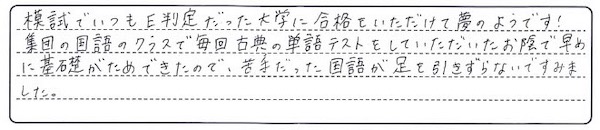 模試でいつもE判定だった大学に合格をいただけて夢のようです!
集団の国語のクラスで毎回古典の単語テストをしていただいたお陰で早め
に基礎がためできたので、苦手だった国語が足を引きずらないですみま
した。